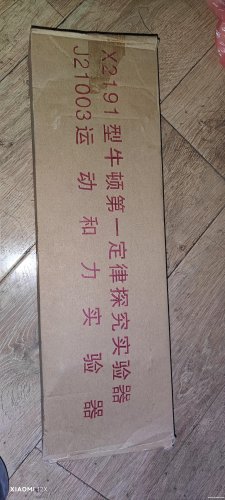 X2191型牛顿第一定律探究实验器
J21003运动和力实验器
XIAOMI 12X